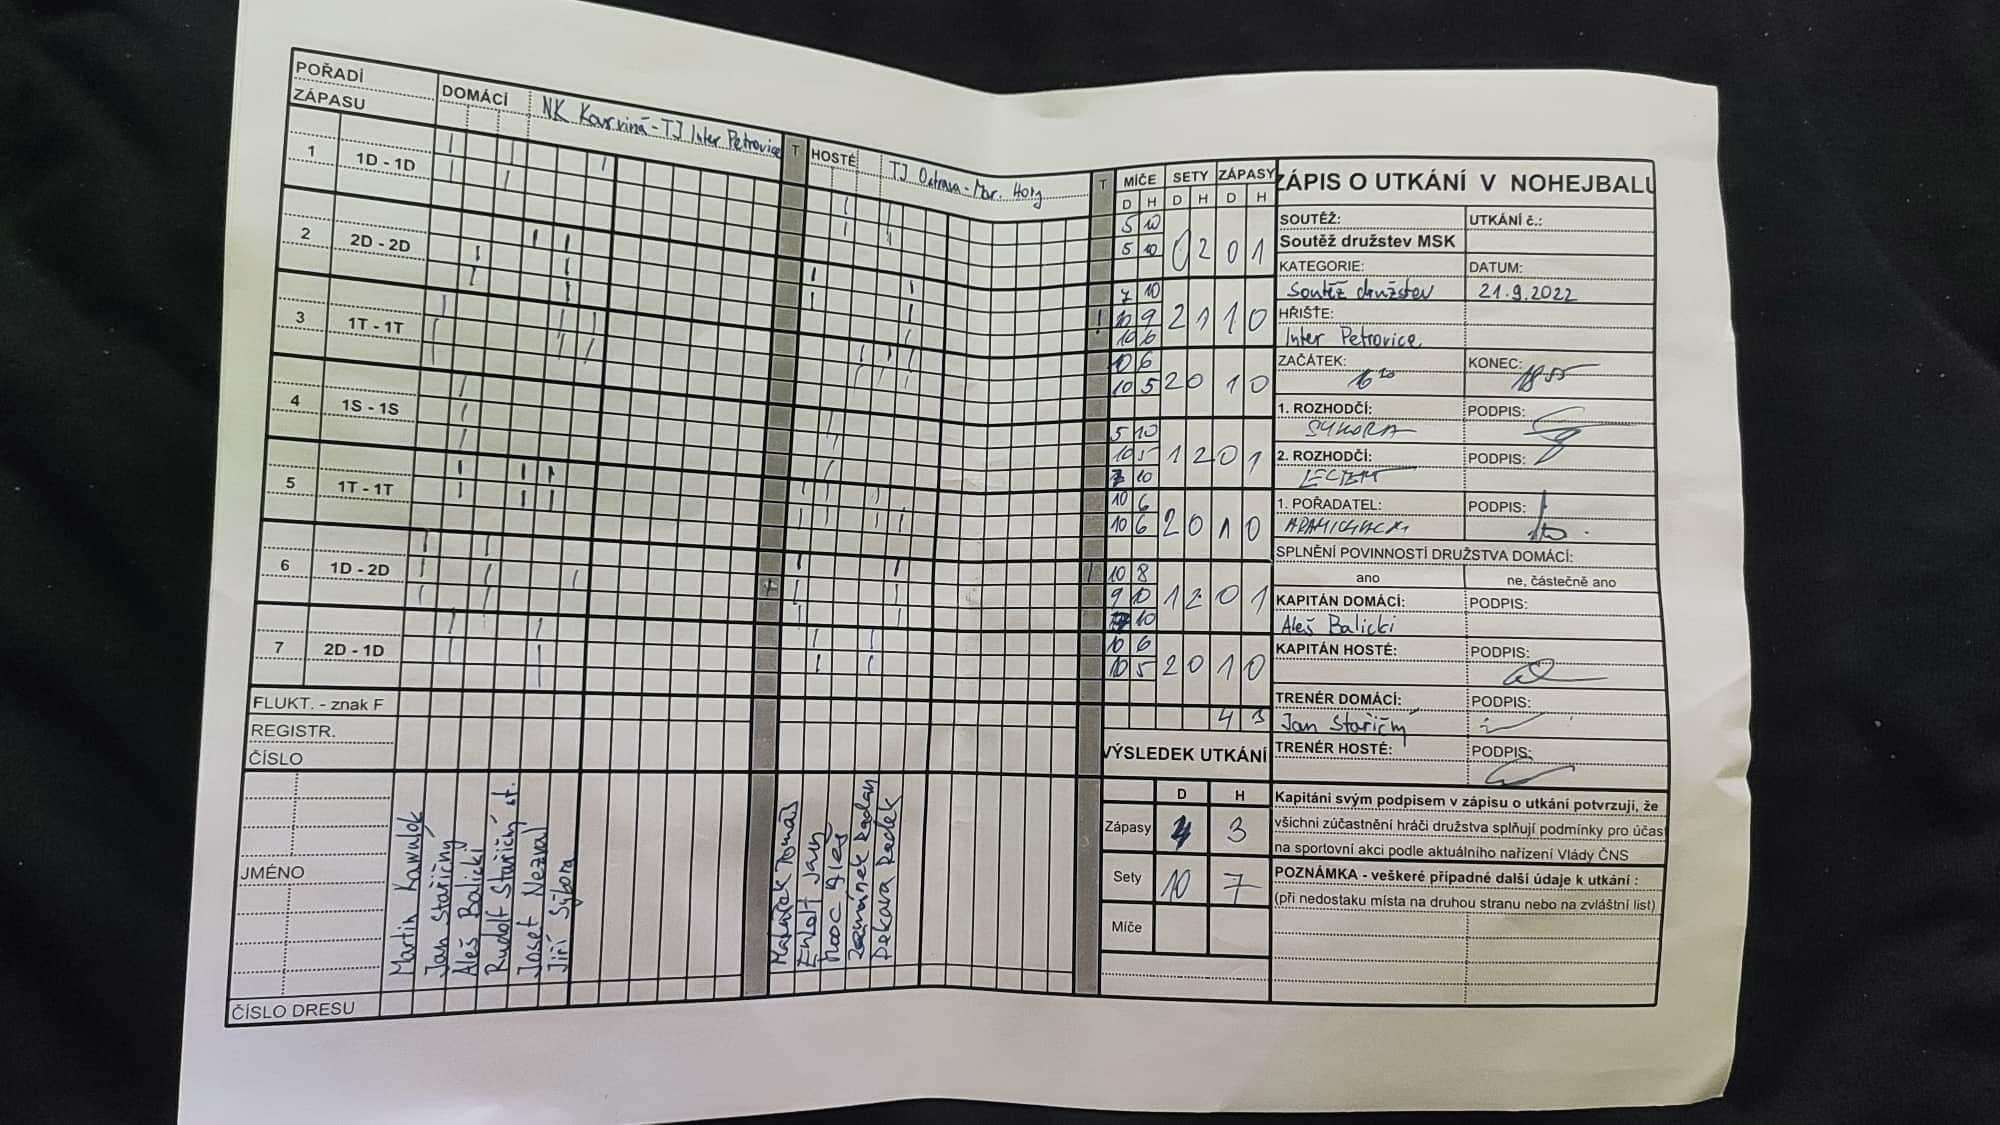 POŘADÍ
ZÁPASU
DOMÁCÍ NK Karviná - TJ Inter Petrovice T HOSTÉ TJ Ostrava - Mar. Hory T
MÍČE SETY ZÁPASY
D H D H D H
1 1D - 1D
5 10
5 10
0 2 0 1
2 2D - 2D
7 10
10 9
10 6
2 1 1 0
3 1T - 1T
10 6
10 5
2 0 1 0
4 1S - 1S
5 10
10 5
7 10
1 2 0 1
5 1T - 1T
10 6
10 6
2 0 1 0
6 1D - 2D
10 8
9 10
10
1 2 0 1
7 2D - 1D
10 6
10 5
2 0 1 0
4 3
FLUKT. - znak F
REGISTR.
ČÍSLO
JMÉNO
Martin Kawulok
Jan Stařičný
Aleš Balicki
Rudolf Stařičný st.
Josef Nezval
Jiří Sýkora
Tomáš
Radek
ČÍSLO DRESU
VÝSLEDEK UTKÁNÍ
D H
Zápasy 4 3
Sety 10 7
Míče
ZÁPIS O UTKÁNÍ V NOHEJBALU
SOUTĚŽ: UTKÁNÍ č.:
Soutěž družstev MSK
KATEGORIE: DATUM:
Soutěž družstev 21.9.2022
HŘIŠTE:
Inter Petrovice
ZAČÁTEK: KONEC:
18 55
1. ROZHODČÍ: PODPIS:
SÝKORA
2. ROZHODČÍ: PODPIS:
1. POŘADATEL: PODPIS:
SPLNĚNÍ POVINNOSTÍ DRUŽSTVA DOMÁCÍ:
ano ne, částečně ano
KAPITÁN DOMÁCÍ: PODPIS:
Aleš Balicki
KAPITÁN HOSTÉ: PODPIS:
TRENÉR DOMÁCÍ: PODPIS:
Jan Stařičný
TRENÉR HOSTÉ: PODPIS:
Kapitáni svým podpisem v zápisu o utkání potvrzují, že
všichni zúčastnění hráči družstva splňují podmínky pro účast
na sportovní akci podle aktuálního nařízení Vlády ČNS
POZNÁMKA - veškeré případné další údaje k utkání :
(při nedostaku místa na druhou stranu nebo na zvláštní list)